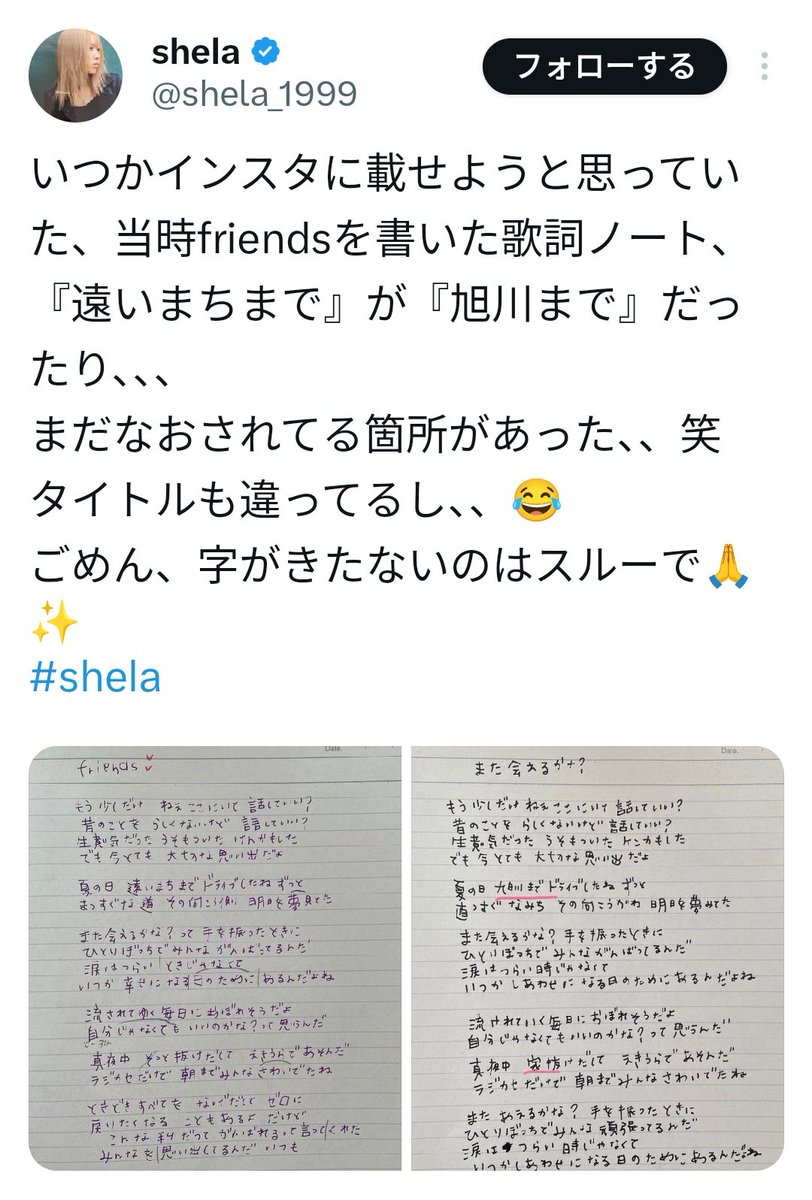 shela
@shela_1999
フォローする
いつかインスタに載せようと思ってい
た、当時friendsを書いた歌詞ノート、
『遠いまちまで』が『旭川まで』だっ
たり､､､
まだなおされてる箇所があった､､笑
タイトルも違ってるし､､😂
ごめん、字がきたないのはスルーで🙏
✨
#shela
Date.
friends
もう少しだけ ねぇ ここにいて 話していい?
昔のことを らしくないけど 話していい?
生意気だった うそもついた けんかもした
でも今とても 大切な思い出だよ
夏の日 遠いまちまで ドライブしたね ずっと
まっすぐな道 その向こう側 明日を夢見てた
また会えるかな?って 手を振ったときに
ひとりぼっちで みんな がんばってるんだ
涙はつらい ときじゃなくて
いつか 幸せになる日のために あるんだよね
流されて働く毎日に おぼれそうだよ
自分じゃなくても いいのかな?って思うんだ
真夜中 そっと抜けだして えきうらであそんだ
ラジカセだけで 朝までみんなさわいでたね
ときどきすべてを なげだして ゼロに
戻りたくなる こともあるよ だけど
こんな私だって がんばれるって言ってくれた
みんなを思い出してるんだ いつも
Date.
また会えるかな?
もう少しだけ ねぇ ここにいて 話していい?
昔のことを らしくないけど 話していい?
生意気だった うそもついた ケンカもした
でも今とても 大切な思い出だよ
夏の日 旭川まで ドライブしたね ずっと
直っすぐ なみち その向こうがわ 明日を夢みてた
また会えるかな? 手を振ったときに
ひとりぼっちで みんながんばってるんだ
涙はつらい時じゃなくて
いつか しあわせに なる日のためにあるんだよね
流されていく毎日に おぼれそうだよ
自分じゃなくてもいいのかな?って思うんだ
真夜中 家抜けだして えきうらであそんだ
ラジカセだけで 朝までみんなさわいでたね
また あえるかな? 手を振ったときに
ひとりぼっちでみんな頑張ってるんだ
涙は つらい 時じゃなくて
いつかしあわせに なる日のためにあるんだよね